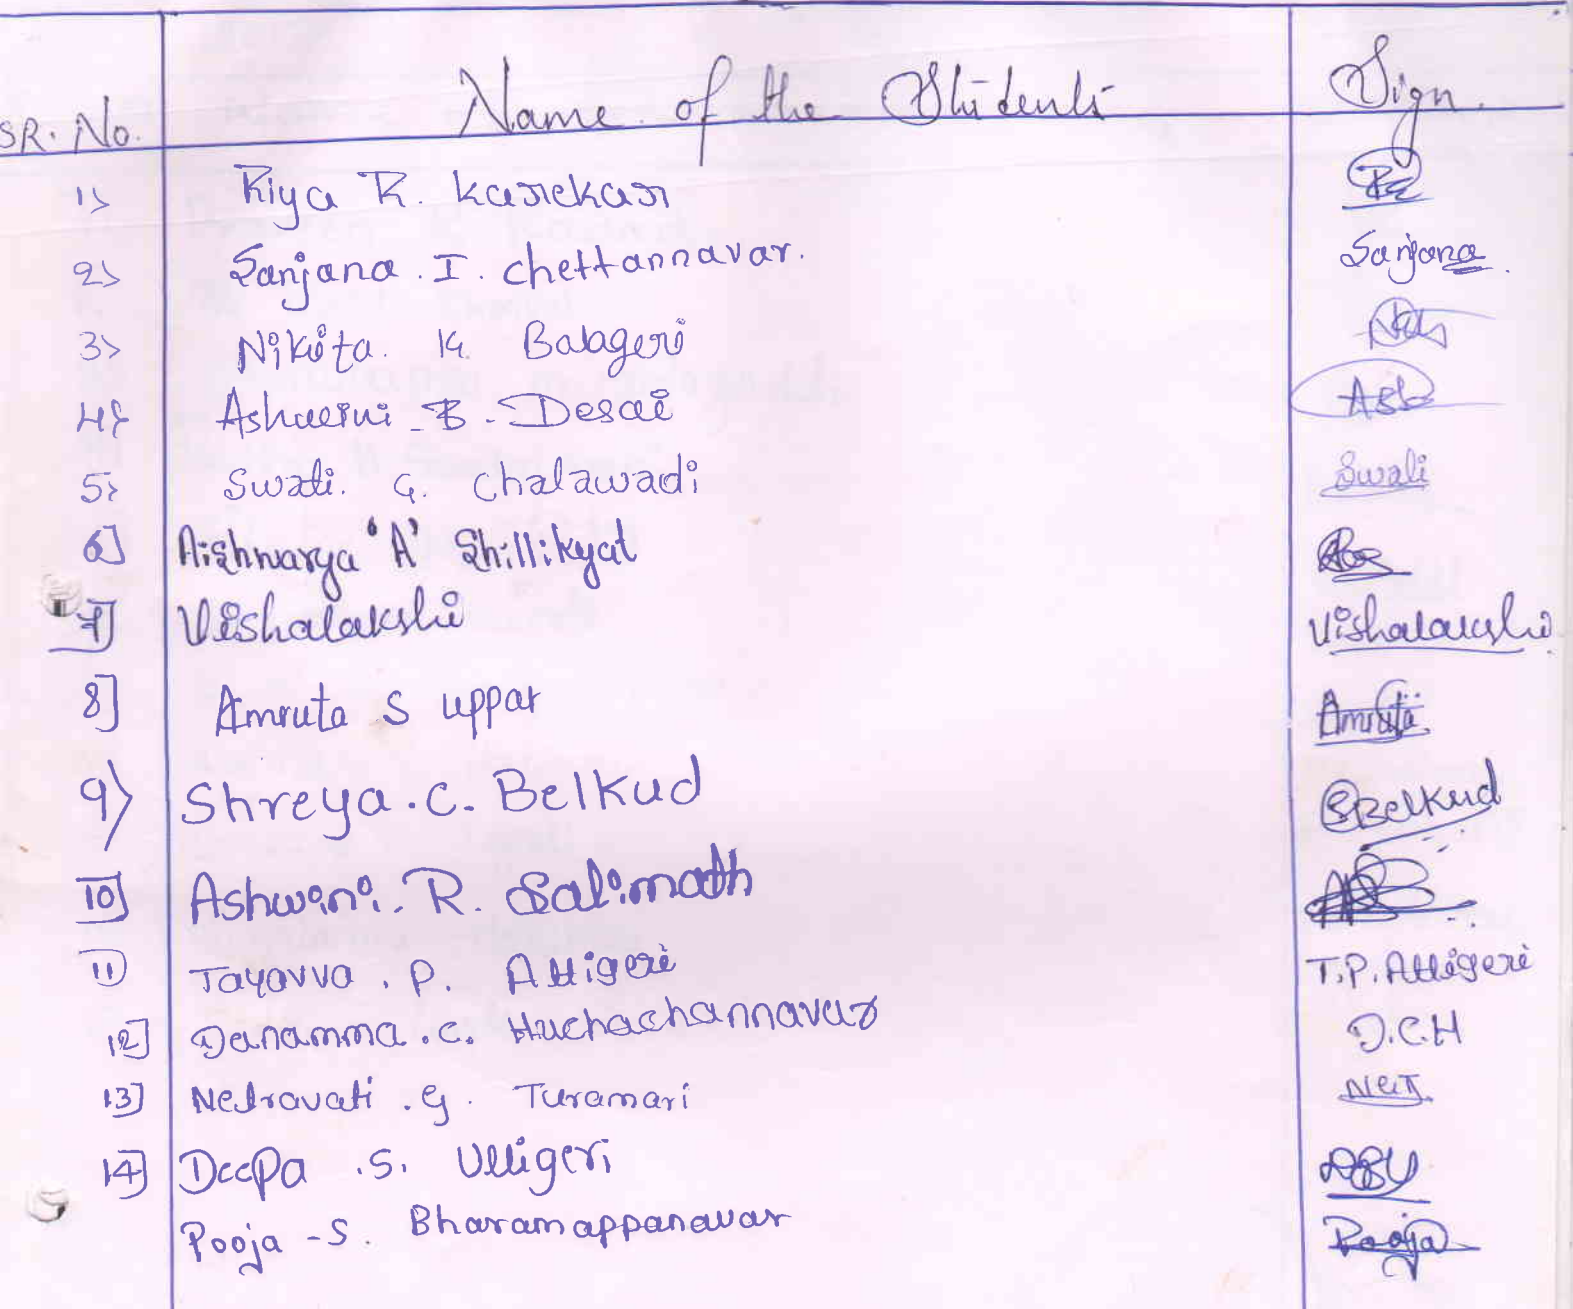 SR. No. Name of the Students Sign.
1> Riya R. Karekar
2> Sanjana . I. chettannavar. Sanjana.
3> Nikita. K. Balageri
4> Ashwini - B - Desai
5> Swati. G. Chalawadi Swati
6] Aishwarya 'A' Shillikyat
7] Vishalakshi Vishalakshi
8] Amruta S uppar Amruta.
9) Shreya . C. Belkud SBelkud
10] Ashwini. R. Salimath
11) Tayavva . P. Attigeri T.P. Attigeri
12] Danamma . C. Huchachannavar D.C.H
13] Netravati . G. Turamari NGT
14] Deepa . S. Ulligeri DSU
Pooja - S. Bharamappanavar Pooja